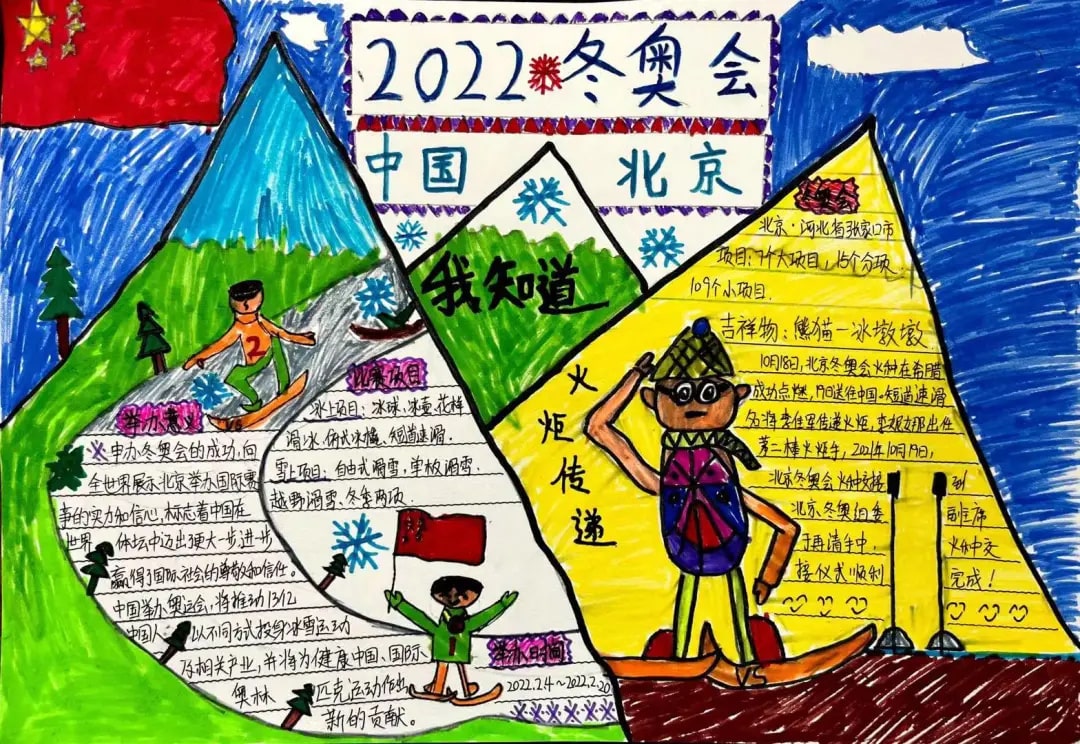 2022冬奥会
中国 北京
我知道
举办意义
申办冬奥会的成功,向
全世界展示北京举办国际赛
事的实力和信心,标志着中国在
世界体坛中迈出更大一步,进一步
赢得了国际社会的尊敬和信任。
中国举办奥运会,将推动13亿
中国人以不同方式投身冰雪运动
及相关产业,并将为健康中国、国际
奥林匹克运动作出
新的贡献。
比赛项目
冰上项目:冰球、冰壶、花样
滑冰、短道速滑.
雪上项目:自由式滑雪、单板滑雪.
越野滑雪、冬季两项.
举办时间
2022.2.4~2022.2.20
火炬传递
奥会
北京·河北省张家口市
项目:7个大项目,15个分项
109个小项目.
吉祥物:熊猫-冰墩墩
10月18日,北京冬奥会火种在希腊
成功点燃,19日送往中国-短道速滑
名将李佳军传递火炬,
第二棒火炬手,2021年10月19日,
北京冬奥会火种交接到
北京冬奥组委副主席
于再清手中,火种交
接仪式顺利完成!
2
VS
1
VS